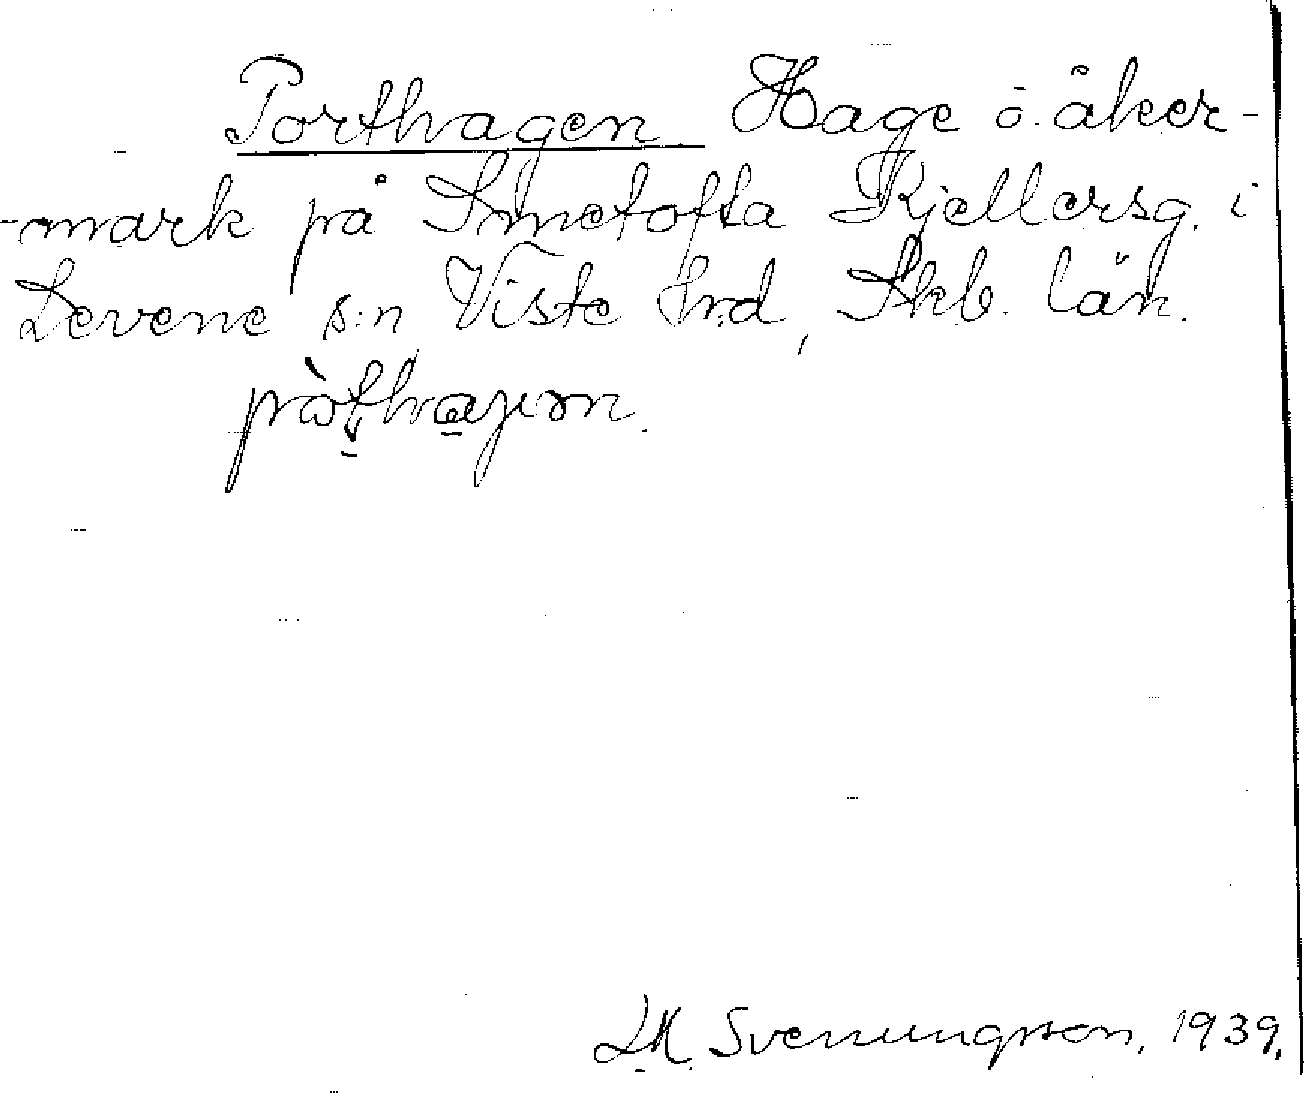 Porthagen Hage o. åker-
-mark på Smetofta Kjellersg. i
Levene s:n Viste hrd, Skb. län.
L.M. Svenungsson, 1939.